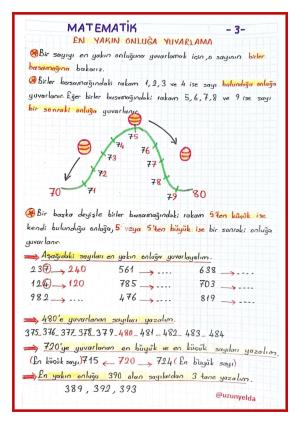 MATEMATİK -3-
EN YAKIN ONLUĞA YUVARLAMA
Bir sayıyı en yakın onluğa yuvarlamak için, o sayının birler
basamağına bakarız.
Birler basamağındaki rakam 1,2,3 ve 4 ise sayı bulunduğu onluğa
yuvarlanır. Eğer birler basamağındaki rakam 5,6,7,8 ve 9 ise sayı
bir sonraki onluğa yuvarlanır.
75
74 76
73 77
72 78
70 71 79 80
Bir başka deyişle birler basamağındaki rakam 5'ten küçük ise
kendi bulunduğu onluğa, 5 veya 5'ten büyük ise bir sonraki onluğa
yuvarlanır.
Aşağıdaki sayıları en yakın onluğa yuvarlayalım.
237 → 240 561 → .... 638 → ....
124 → 120 785 → .... 703 → ....
982 → .... 476 → .... 819 → ....
480'e yuvarlanan sayıları yazalım.
375_376_377_378_379_480_481_482_483_484
720'ye yuvarlanan en büyük ve en küçük sayıları yazalım.
(En küçük sayı) 715 ← 720 → 724 (En büyük sayı)
En yakın onluğa 390 olan sayılardan 3 tane yazalım.
389, 392, 393
@uzunyelda